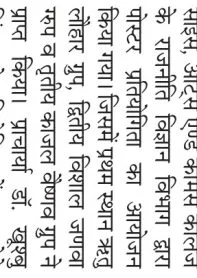 साइंस, आर्ट्स एण्ड कॉमर्स कॉलेज
के राजनीति विज्ञान विभाग द्वारा
पोस्टर प्रतियोगिता का आयोजन
किया गया। जिसमें प्रथम स्थान ऋतु
लौहार ग्रुप, द्वितीय विशाल जणवा
रूप व तृतीय काजल वैष्णव ग्रुप ने
प्राप्त किया। प्राचार्या डॉ. खुश्बु